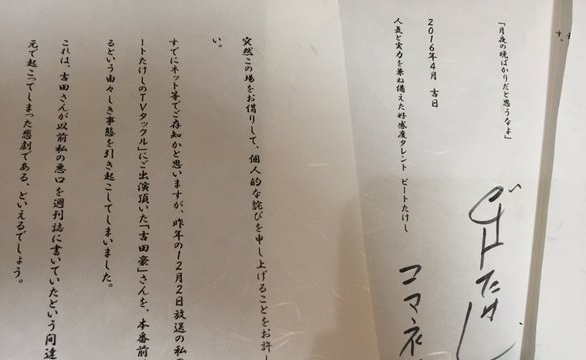 す。
「月夜の晩ばかりだと思うなよ」
ビートたけし
コマネ
2016年4月 吉日
人気と実力を兼ね備えた好感度タレント ビートたけし
突然この場をお借りして、個人的な詫びを申し上げることをお許し
い。
すでにネット等でご存知かと思いますが、昨年の12月2日放送の私の
ートたけしのTVタックル」にご出演頂いた「吉田豪」さんを、本番前
るという由々しき事態を引き起こしてしまいました。
これは、吉田さんが以前私の悪口を週刊誌に書いていたという間違
元で起こってしまった悲劇である、といえるでしょう。